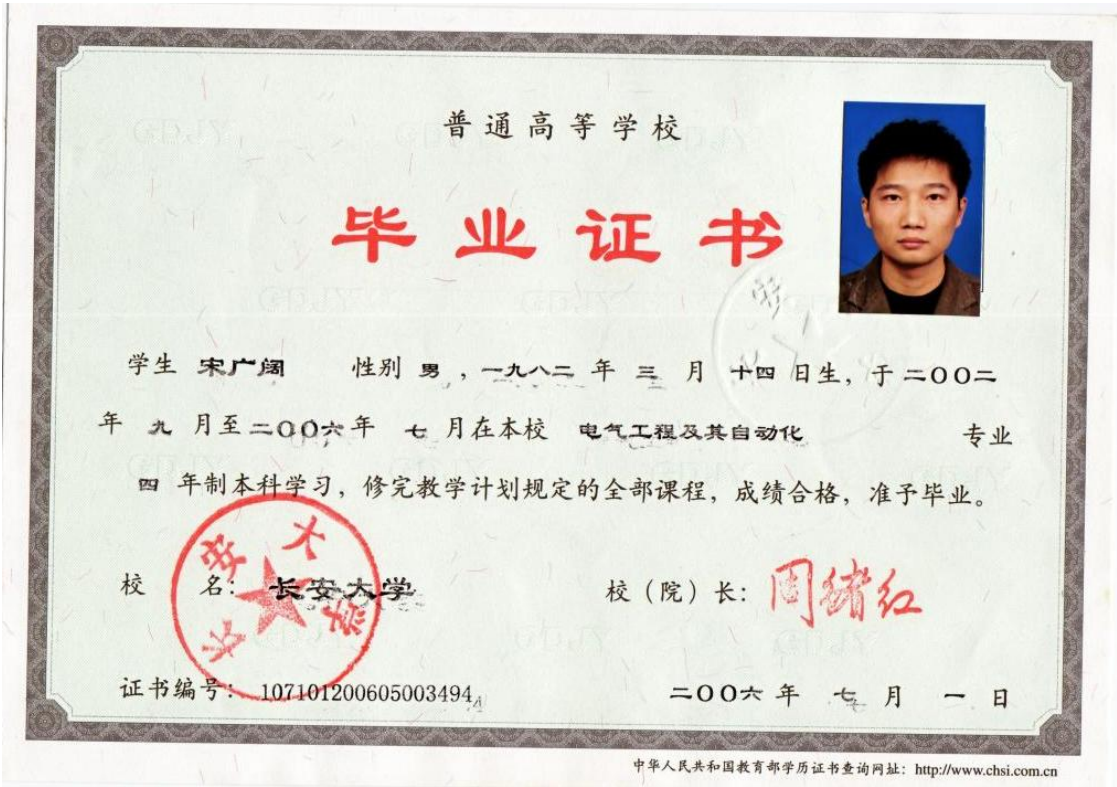 普通高等学校
毕业证书
学生 宋广阔 性别 男，一九八二 年 三 月 十四 日生，于 二〇〇二
年 九 月至 二〇〇六 年 七 月在本校 电气工程及其自动化 专业
四 年制本科学习，修完教学计划规定的全部课程，成绩合格，准予毕业。
校 名：长安大学 校（院）长：周绪红
长安大学
证书编号：107101200605003494 二〇〇六 年 七 月 一 日
中华人民共和国教育部学历证书查询网址：http://www.chsi.com.cn